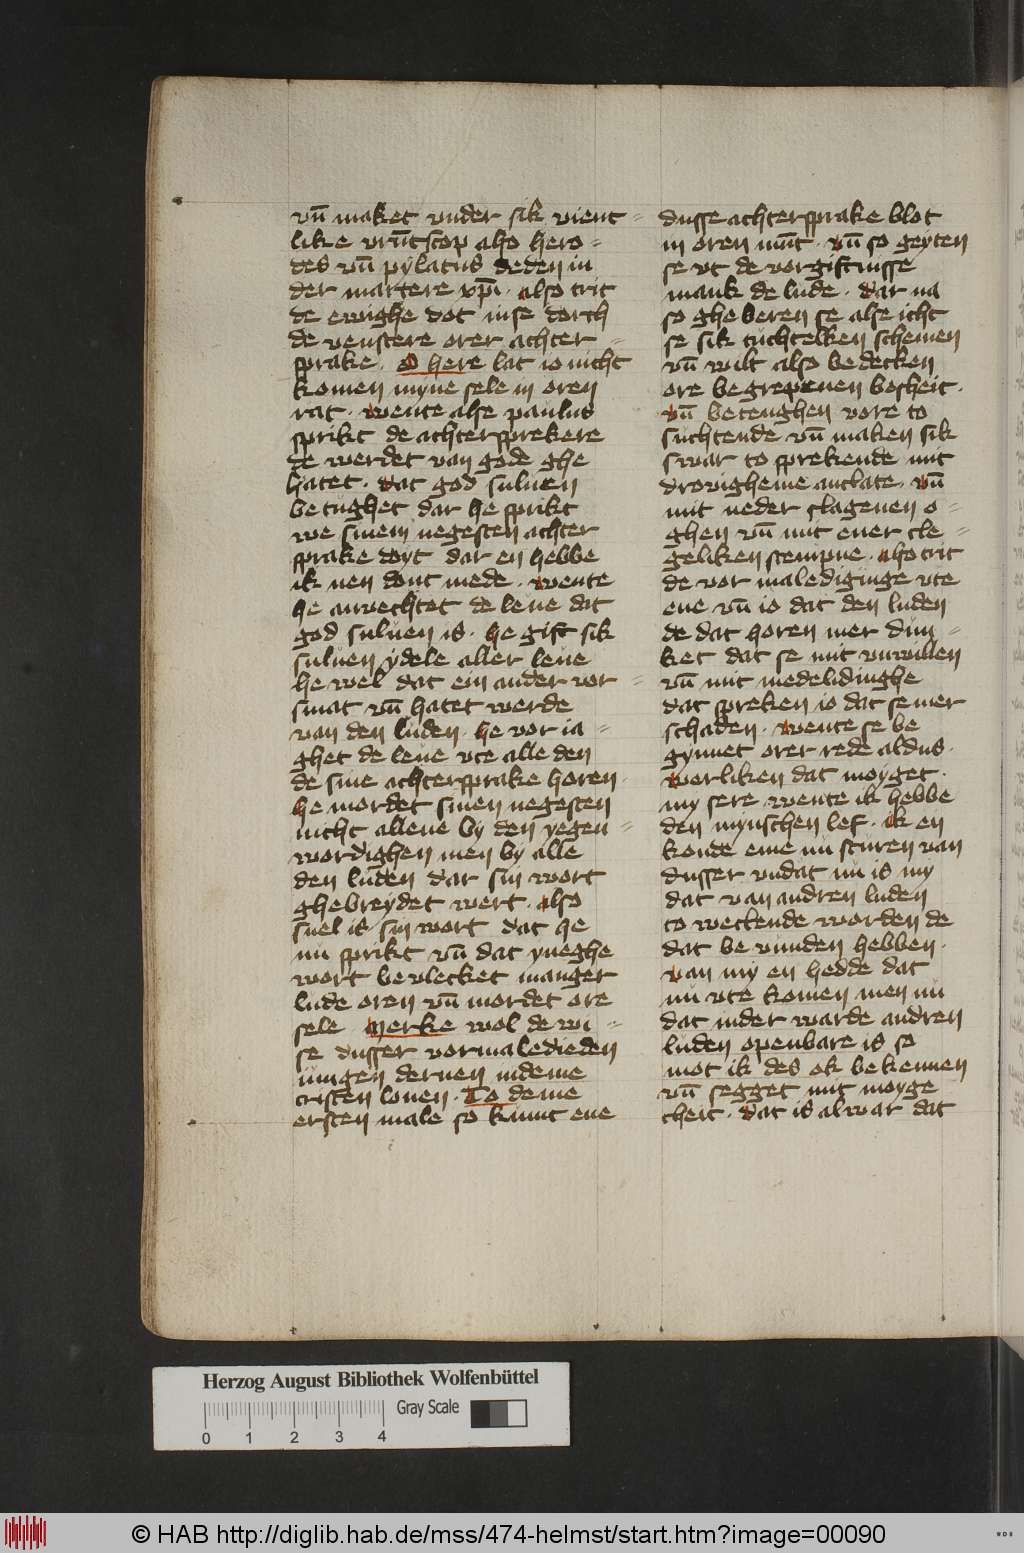 vn̄ maket vnder sik vient=
like vrūtscop also hero=
des vn̄ pylatus deden in
der martere xp̄i · also trit
de ewighe dot in se dorch
de venstere orer achter=
sprake · O here lat io nicht
komen myne sele in oren
rat · wente alse paulus
sprikt de achtersprekere
de werdet van gode ghe
hatet · dat god suluen
betughet dar he sprikt
we sinem negesten achter
sprake doyt dar en hebbe
ik nen dont mede · wente
he anvechtet de leue dat
god suluen is · he gift sik
suluen ydele aller leue
he wel dat ein ander vor=
smat vn̄ hatet werde
van den luden · he vor ia=
ghet de leue vte alle den
de sine achtersprake horen ·
he mordet sinen negesten
nicht allene by den yegen=
wordighen men by alle
den luden dar sin wort
ghebreydet wert · also
snel is sin wort dat he
nu sprikt vn̄ dat yneghe
wort bevlecket manger
lude oren vn̄ mordet ore
sele Merke wol de wi=
se dusser vormaledieden
tungen deruen indeme
cristen louen · To deme
ersten male so kumt ene
dusse achtersprake blot
in oren mūt · vn̄ so geyten
se vt de vorgiftnisse
mank de lude · dar na
so gheberen se alse icht
se sik tuchtelken schemen
vn̄ wilt also bedecken
ore begrepenen bosheit ·
vn̄ beteughen vore to
suchtende vn̄ maken sik
swar to sprekende mit
drovigheme antlate · vn̄
mit neder slagenen o=
ghen vn̄ mit ener cle=
geliken stempne · also trit
de vor maledigīge vte
ene vn̄ io dat den luden
de dat horen mer dun=
ket dat se mit vnwillen
vn̄ mit medelidinghe
dat spreken io dat se mer
schaden · wente se be
gynnet orer rede aldus ·
werliken dat moyget ·
my sere wente ik hebbe
den mynschen lef · ik en
konde eme nu sturen van
dusser vndat nu is my
dat van andren luden
to wetende worden de
dat be vunden hebben ·
van my en hedde dat
nu vte komen men nu
dat in der warde andren
luden openbare is so
mot ik des ok bekennen
vn̄ segget mit moyge
cheit · dat is alwar dat
Herzog August Bibliothek Wolfenbüttel
Gray Scale
0 1 2 3 4
© HAB http://diglib.hab.de/mss/474-helmst/start.htm?image=00090